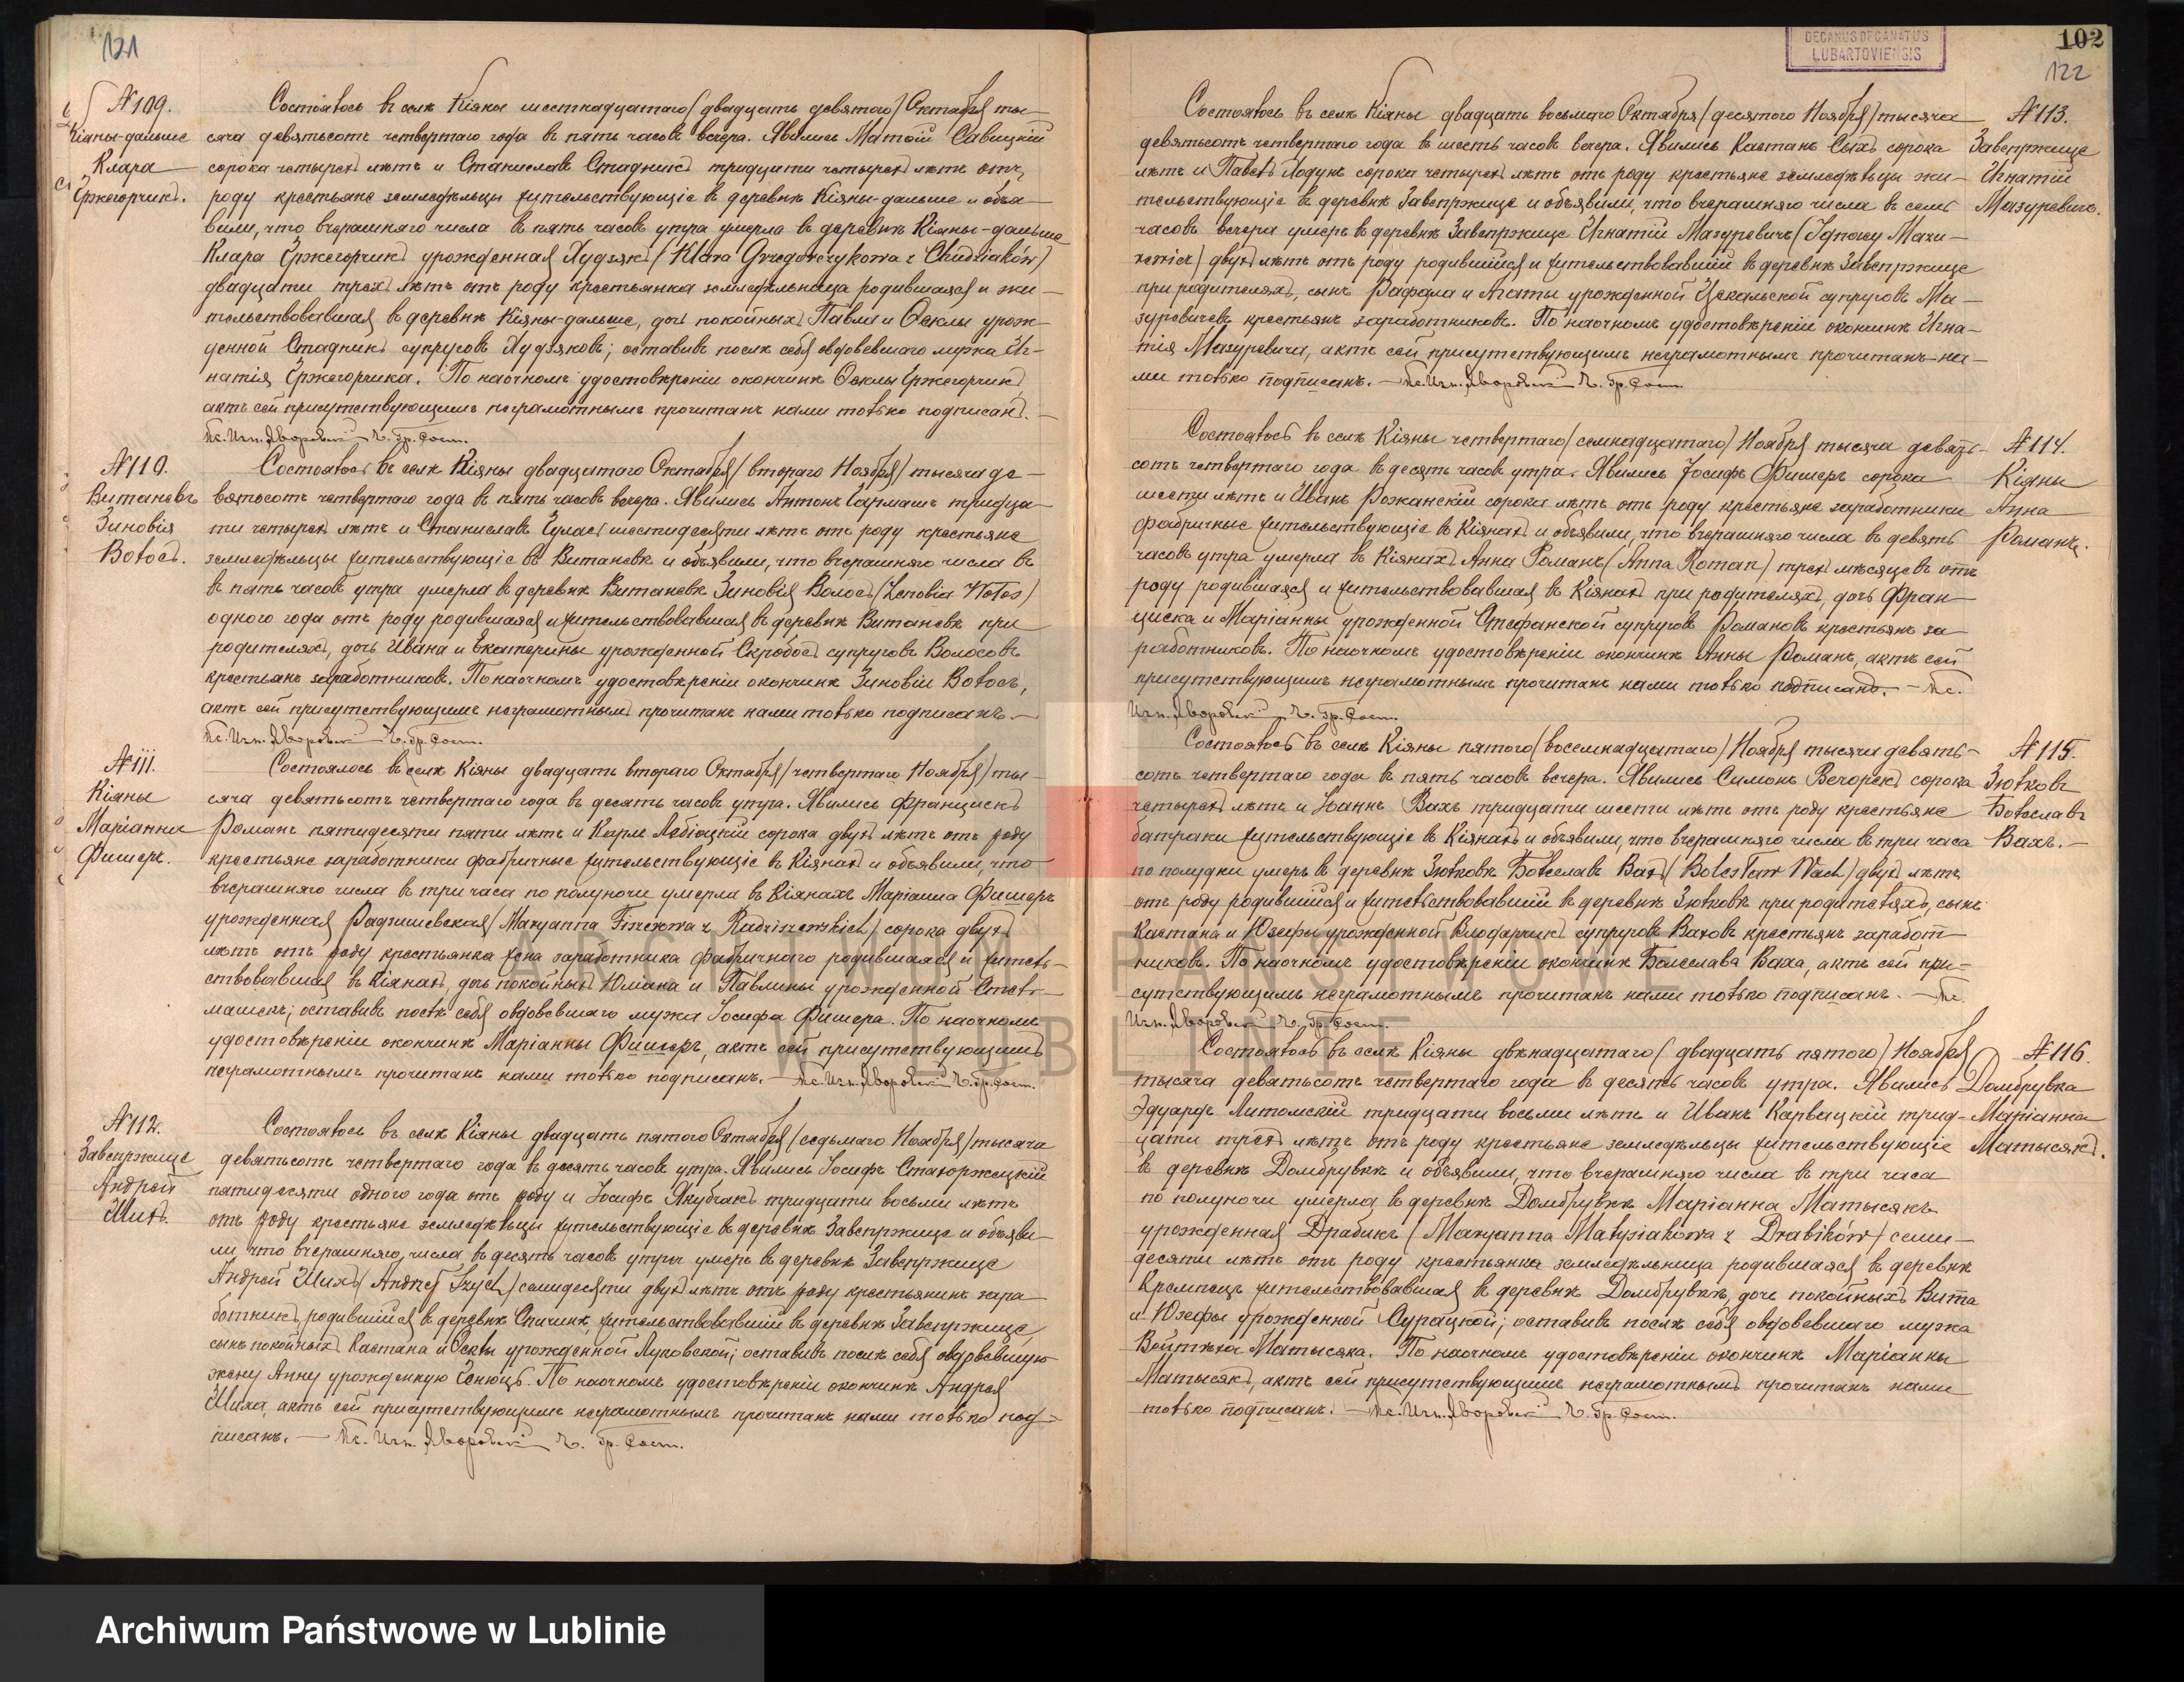 121
№ 109.
Кіяны-дальше
Клара
Гржегорчикъ.
Состоялось въ селѣ Кіяны шестнадцатаго (двадцать девятаго) Октября ты-
сяча девятьсотъ четвертаго года въ пять часовъ вечера. Явились Матвій Савицкій
сорока четырехъ лѣтъ и Станиславъ Стадникъ тридцати четырехъ лѣтъ отъ
роду крестьяне земледѣльцы жительствующіе въ деревнѣ Кіяны-дальше и объя-
вили, что вчерашняго числа въ пять часовъ утра умерла въ деревнѣ Кіяны-дальше
Клара Гржегорчикъ урожденная Худзякъ (Klara Grzegorczykowa z Chudziaków)
двадцати трехъ лѣтъ отъ роду крестьянка земледѣльница родившаяся и жи-
тельствовавшая въ деревнѣ Кіяны-дальше, дочь покойныхъ Павла и Феклы урож-
денной Стадникъ супруговъ Худзяковъ; оставивъ послѣ себя овдовевшаго мужа Иг-
натія Гржегорчика. По наочномъ удостовѣреніи о кончинѣ Феклы Гржегорчикъ
актъ сей присутствующимъ неграмотнымъ прочитанъ нами только подписанъ. —
Кс. Игн. Яворскій Ч. Гр. Сост.
№ 110.
Витановъ
Зиновія
Волосъ.
Состоялось въ селѣ Кіяны двадцатаго Октября (втораго Ноября) тысяча де-
вятьсотъ четвертаго года въ пять часовъ вечера. Явились Антонъ Гармашъ тридца-
ти четырехъ лѣтъ и Станиславъ Гулясъ шестидесяти лѣтъ отъ роду крестьяне
земледѣльцы жительствующіе въ Витановѣ и объявили, что вчерашняго числа въ
въ пять часовъ утра умерла въ деревнѣ Витановѣ Зиновія Волосъ (Zenobia Wołos)
одного года отъ роду родившаяся и жительствовавшая въ деревнѣ Витановѣ при
родителяхъ, дочь Ивана и Екатерины урожденной Скробосъ супруговъ Волосовъ
крестьянъ заработниковъ. По наочномъ удостовѣреніи о кончинѣ Зиновіи Волосъ,
актъ сей присутствующимъ неграмотнымъ прочитанъ нами только подписанъ. —
Кс. Игн. Яворскій Ч. Гр. Сост.
№ 111.
Кіяны
Маріанна
Фишеръ.
Состоялось въ селѣ Кіяны двадцать втораго Октября (четвертаго Ноября) ты-
сяча девятьсотъ четвертаго года въ десять часовъ утра. Явились Францискъ
Романъ пятидесяти пяти лѣтъ и Карлъ Лебіоцкій сорока двухъ лѣтъ отъ роду
крестьяне заработники фабричные жительствующіе въ Кіянахъ и объявили, что
вчерашняго числа въ три часа по полуночи умерла въ Кіянахъ Маріанна Фишеръ
урожденная Радзишевская (Maryanna Fiszerowa z Radziszewskich) сорока двухъ
лѣтъ отъ роду крестьянка жена заработника фабричнаго родившаяся и житель-
ствовавшая въ Кіянахъ, дочь покойныхъ Юліана и Павлины урожденной Стель-
машекъ; оставивъ послѣ себя овдовевшаго мужа Іосифа Фишера. По наочномъ
удостовѣреніи о кончинѣ Маріанны Фишеръ, актъ сей присутствующимъ
неграмотнымъ прочитанъ нами только подписанъ. — Кс. Игн. Яворскій Ч. Гр. Сост.
№ 112.
Завепржице
Андрей
Шихъ.
Состоялось въ селѣ Кіяны двадцать пятаго Октября (седьмаго Ноября) тысяча
девятьсотъ четвертаго года въ десять часовъ утра. Явились Іосифъ Стахоржецкій
пятидесяти одного года отъ роду и Іосифъ Якубчакъ тридцати восьми лѣтъ
отъ роду крестьяне земледѣльцы жительствующіе въ деревнѣ Завепржице и объяви-
ли, что вчерашняго числа въ десять часовъ утра умеръ въ деревнѣ Завепржице
Андрей Шихъ (Andrzej Szych) семидесяти двухъ лѣтъ отъ роду крестьянинъ зара-
ботникъ, родившійся въ деревнѣ Спичинѣ, жительствовавшій въ деревнѣ Завепржице,
сынъ покойныхъ Каетана и Феклы урожденной Луковской; оставивъ послѣ себя овдовевшую
жену Анну урожденную Сенюцъ. По наочномъ удостовѣреніи о кончинѣ Андрея
Шиха, актъ сей присутствующимъ неграмотнымъ прочитанъ нами только под-
писанъ. — Кс. Игн. Яворскій Ч. Гр. Сост.
DECANUS DECANATUS
LUBARTOVIENSIS
102
122
№ 113.
Завепржице
Игнатій
Мазуревичъ.
Состоялось въ селѣ Кіяны двадцать восьмаго Октября (десятаго Ноября) тысяча
девятьсотъ четвертаго года въ шесть часовъ вечера. Явились Каетанъ Сыхъ сорока
лѣтъ и Павелъ Йодунъ сорока четырехъ лѣтъ отъ роду крестьяне земледѣльцы жи-
тельствующіе въ деревнѣ Завепржице и объявили, что вчерашняго числа въ семь
часовъ вечера умеръ въ деревнѣ Завепржице Игнатій Мазуревичъ (Ignacy Mazu-
rewicz) двухъ лѣтъ отъ роду родившійся и жительствовавшій въ деревнѣ Завепржице
при родителяхъ, сынъ Рафала и Агаты урожденной Цекальской супруговъ Ма-
зуревичевъ крестьянъ заработниковъ. По наочномъ удостовѣреніи о кончинѣ Игна-
тія Мазуревича, актъ сей присутствующимъ неграмотнымъ прочитанъ на-
ми только подписанъ. — Кс. Игн. Яворскій Ч. Гр. Сост.
№ 114.
Кіяны
Анна
Романъ.
Состоялось въ селѣ Кіяны четвертаго (семнадцатаго) Ноября тысяча девять-
сотъ четвертаго года въ десять часовъ утра. Явились Іосифъ Фишеръ сорока
шести лѣтъ и Иванъ Рожанскій сорока лѣтъ отъ роду крестьяне заработники
фабричные жительствующіе въ Кіянахъ и объявили, что вчерашняго числа въ девять
часовъ утра умерла въ Кіянахъ Анна Романъ (Anna Roman) трехъ мѣсяцевъ отъ
роду родившаяся и жительствовавшая въ Кіянахъ при родителяхъ, дочь Фран-
циска и Маріанны урожденной Стефанской супруговъ Романовъ крестьянъ за-
работниковъ. По наочномъ удостовѣреніи о кончинѣ Анны Романъ, актъ сей
присутствующимъ неграмотнымъ прочитанъ нами только подписанъ. — Кс.
Игн. Яворскій Ч. Гр. Сост.
№ 115.
Зютковъ
Болеславъ
Вахъ. —
Состоялось въ селѣ Кіяны пятаго (восемнадцатаго) Ноября тысяча девять-
сотъ четвертаго года въ пять часовъ вечера. Явились Симонъ Вечорекъ сорока
четырехъ лѣтъ и Іоаннъ Вахъ тридцати шести лѣтъ отъ роду крестьяне
батраки жительствующіе въ Кіянахъ и объявили, что вчерашняго числа въ три часа
по полудни умеръ въ деревнѣ Зютковѣ Болеславъ Вахъ (Bolesław Wach) двухъ лѣтъ
отъ роду родившійся и жительствовавшій въ деревнѣ Зютковѣ при родителяхъ, сынъ
Каетана и Юзефы урожденной Влодарчикъ супруговъВаховъ крестьянъ заработ-
никовъ. По наочномъ удостовѣреніи о кончинѣ Болеслава Ваха, актъ сей при-
сутствующимъ неграмотнымъ прочитанъ нами только подписанъ. — Кс.
Игн. Яворскій Ч. Гр. Сост.
№ 116.
Домбрувка
Маріанна
Матысякъ.
Состоялось въ селѣ Кіяны двѣнадцатаго (двадцать пятаго) Ноября
тысяча девятьсотъ четвертаго года въ десять часовъ утра. Явились
Эдуардъ Литомскій тридцати восьми лѣтъ и Иванъ Карвацкій трид-
цати трехъ лѣтъ отъ роду крестьяне земледѣльцы жительствующіе
въ деревнѣ Домбрувкѣ и объявили, что вчерашняго числа въ три часа
по полуночи умерла въ деревнѣ Домбрувкѣ Маріанна Матысякъ
урожденная Драбикъ (Maryanna Matysiakowa z Drabików) семи-
десяти лѣтъ отъ роду крестьянка земледѣльница родившаяся въ деревнѣ
Кремпецъ жительствовавшая въ деревнѣ Домбрувкѣ, дочь покойныхъ Вита
и Юзефы урожденной Сурацкой; оставивъ послѣ себя овдовевшаго мужа
Войтѣха Матысяка. По наочномъ удостовѣреніи о кончинѣ Маріанны
Матысякъ, актъ сей присутствующимъ неграмотнымъ прочитанъ нами
только подписанъ. — Кс. Игн. Яворскій Ч. Гр. Сост.
ARCHIWUM PAŃSTWOWE
W LUBLINIE
Archiwum Państwowe w Lublinie